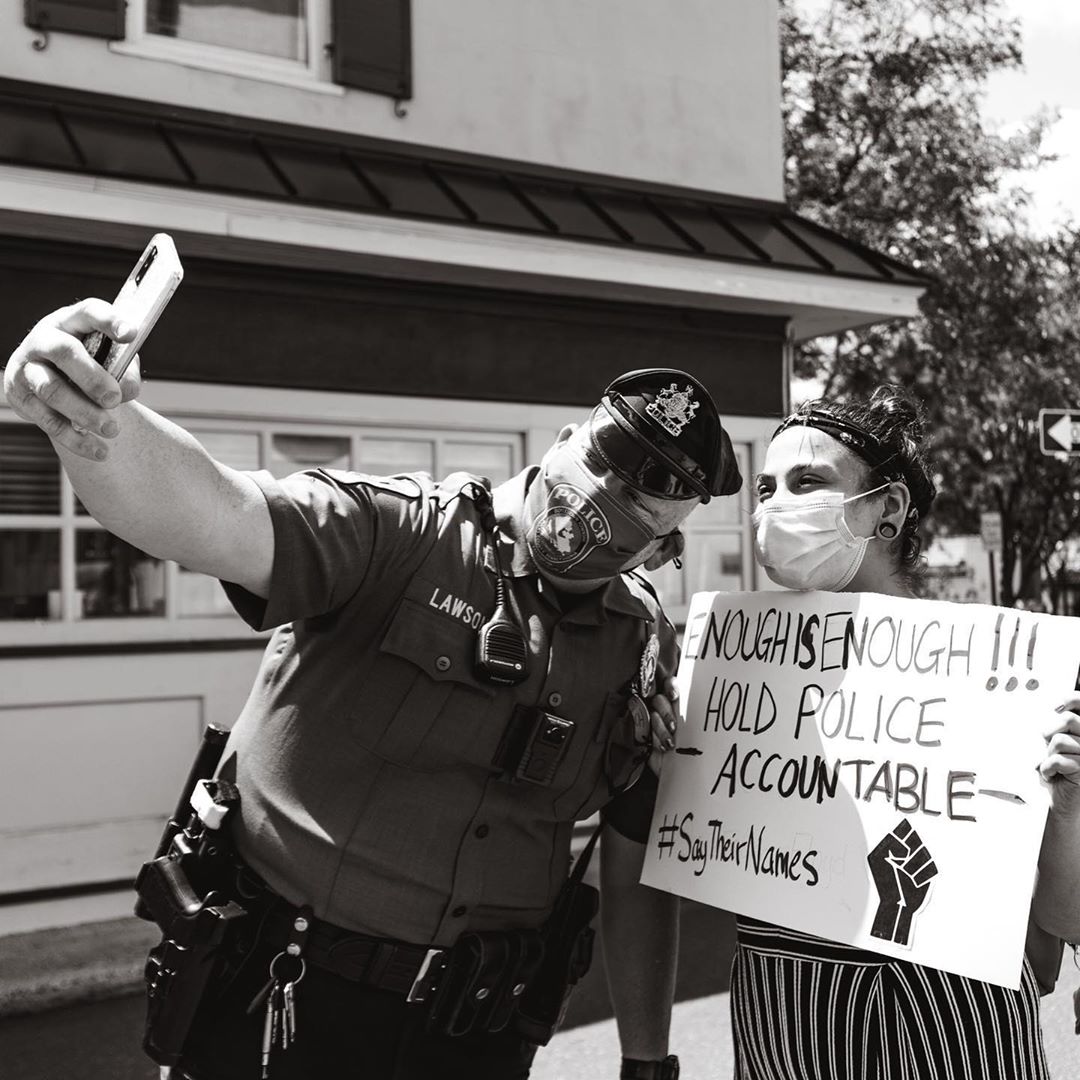 POLICE
POLICE
LAWSO
ENOUGH IS ENOUGH !!!
HOLD POLICE
- ACCOUNTABLE -
#SayTheirNames